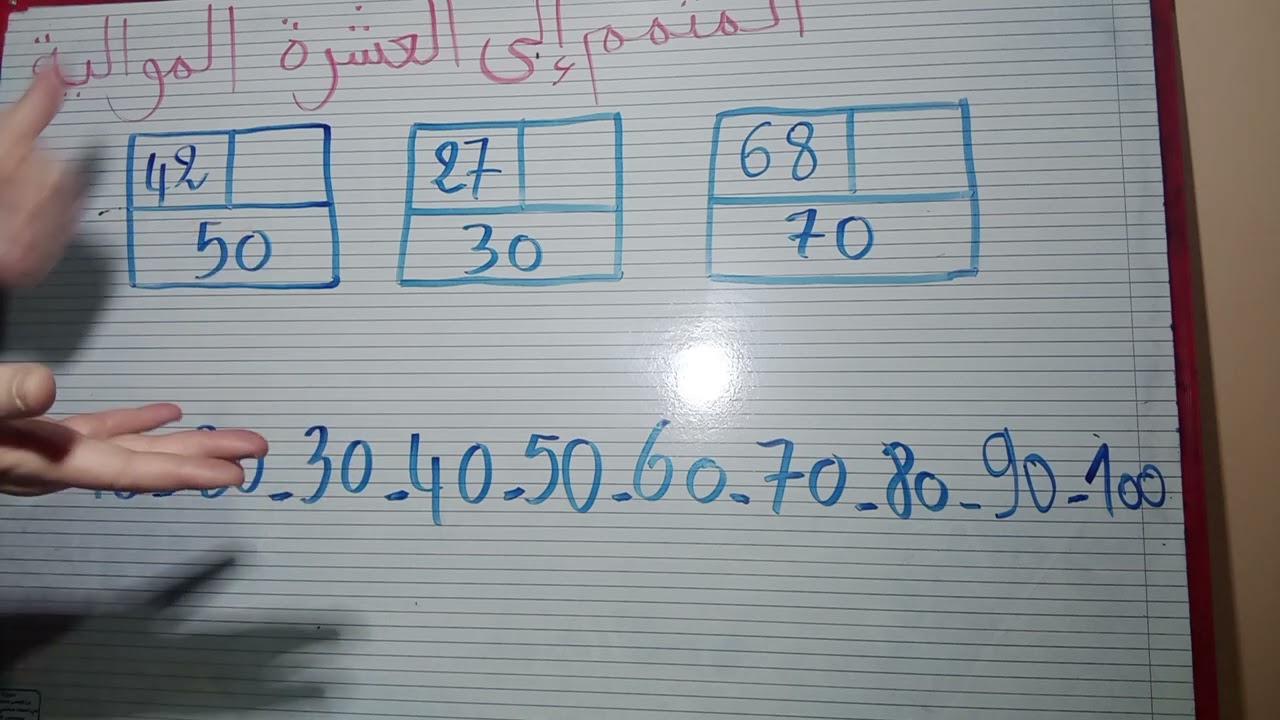 المتمم إلى العشرة الموالية
42 27 68
50 30 70
30 - 40 - 50 - 60 - 70 - 80 - 90 - 100